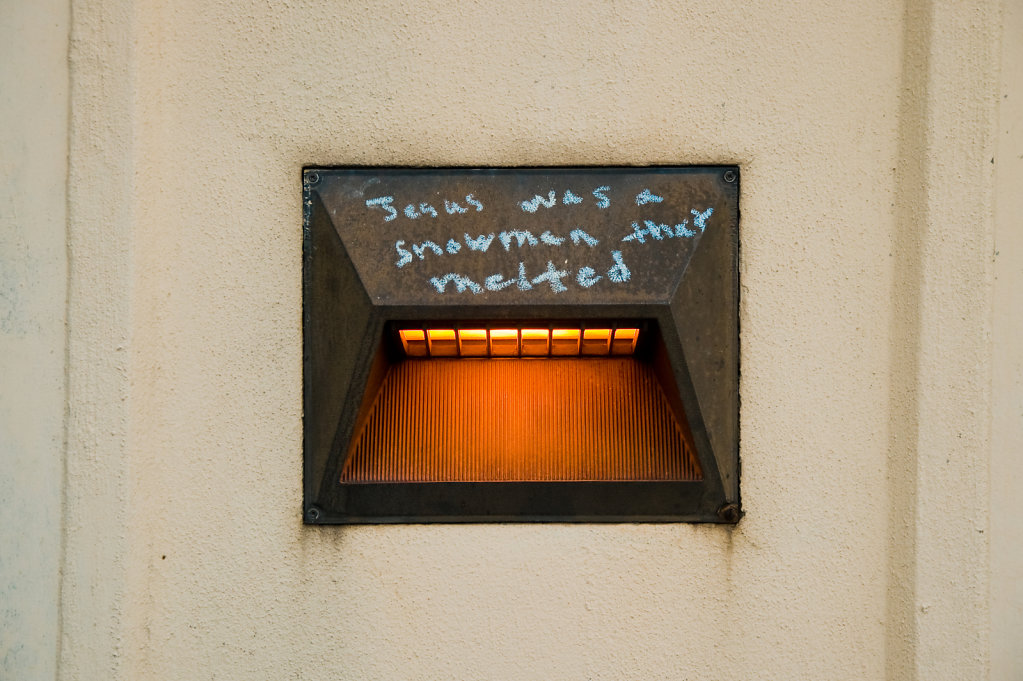 Jesus was a
snowman that
melted